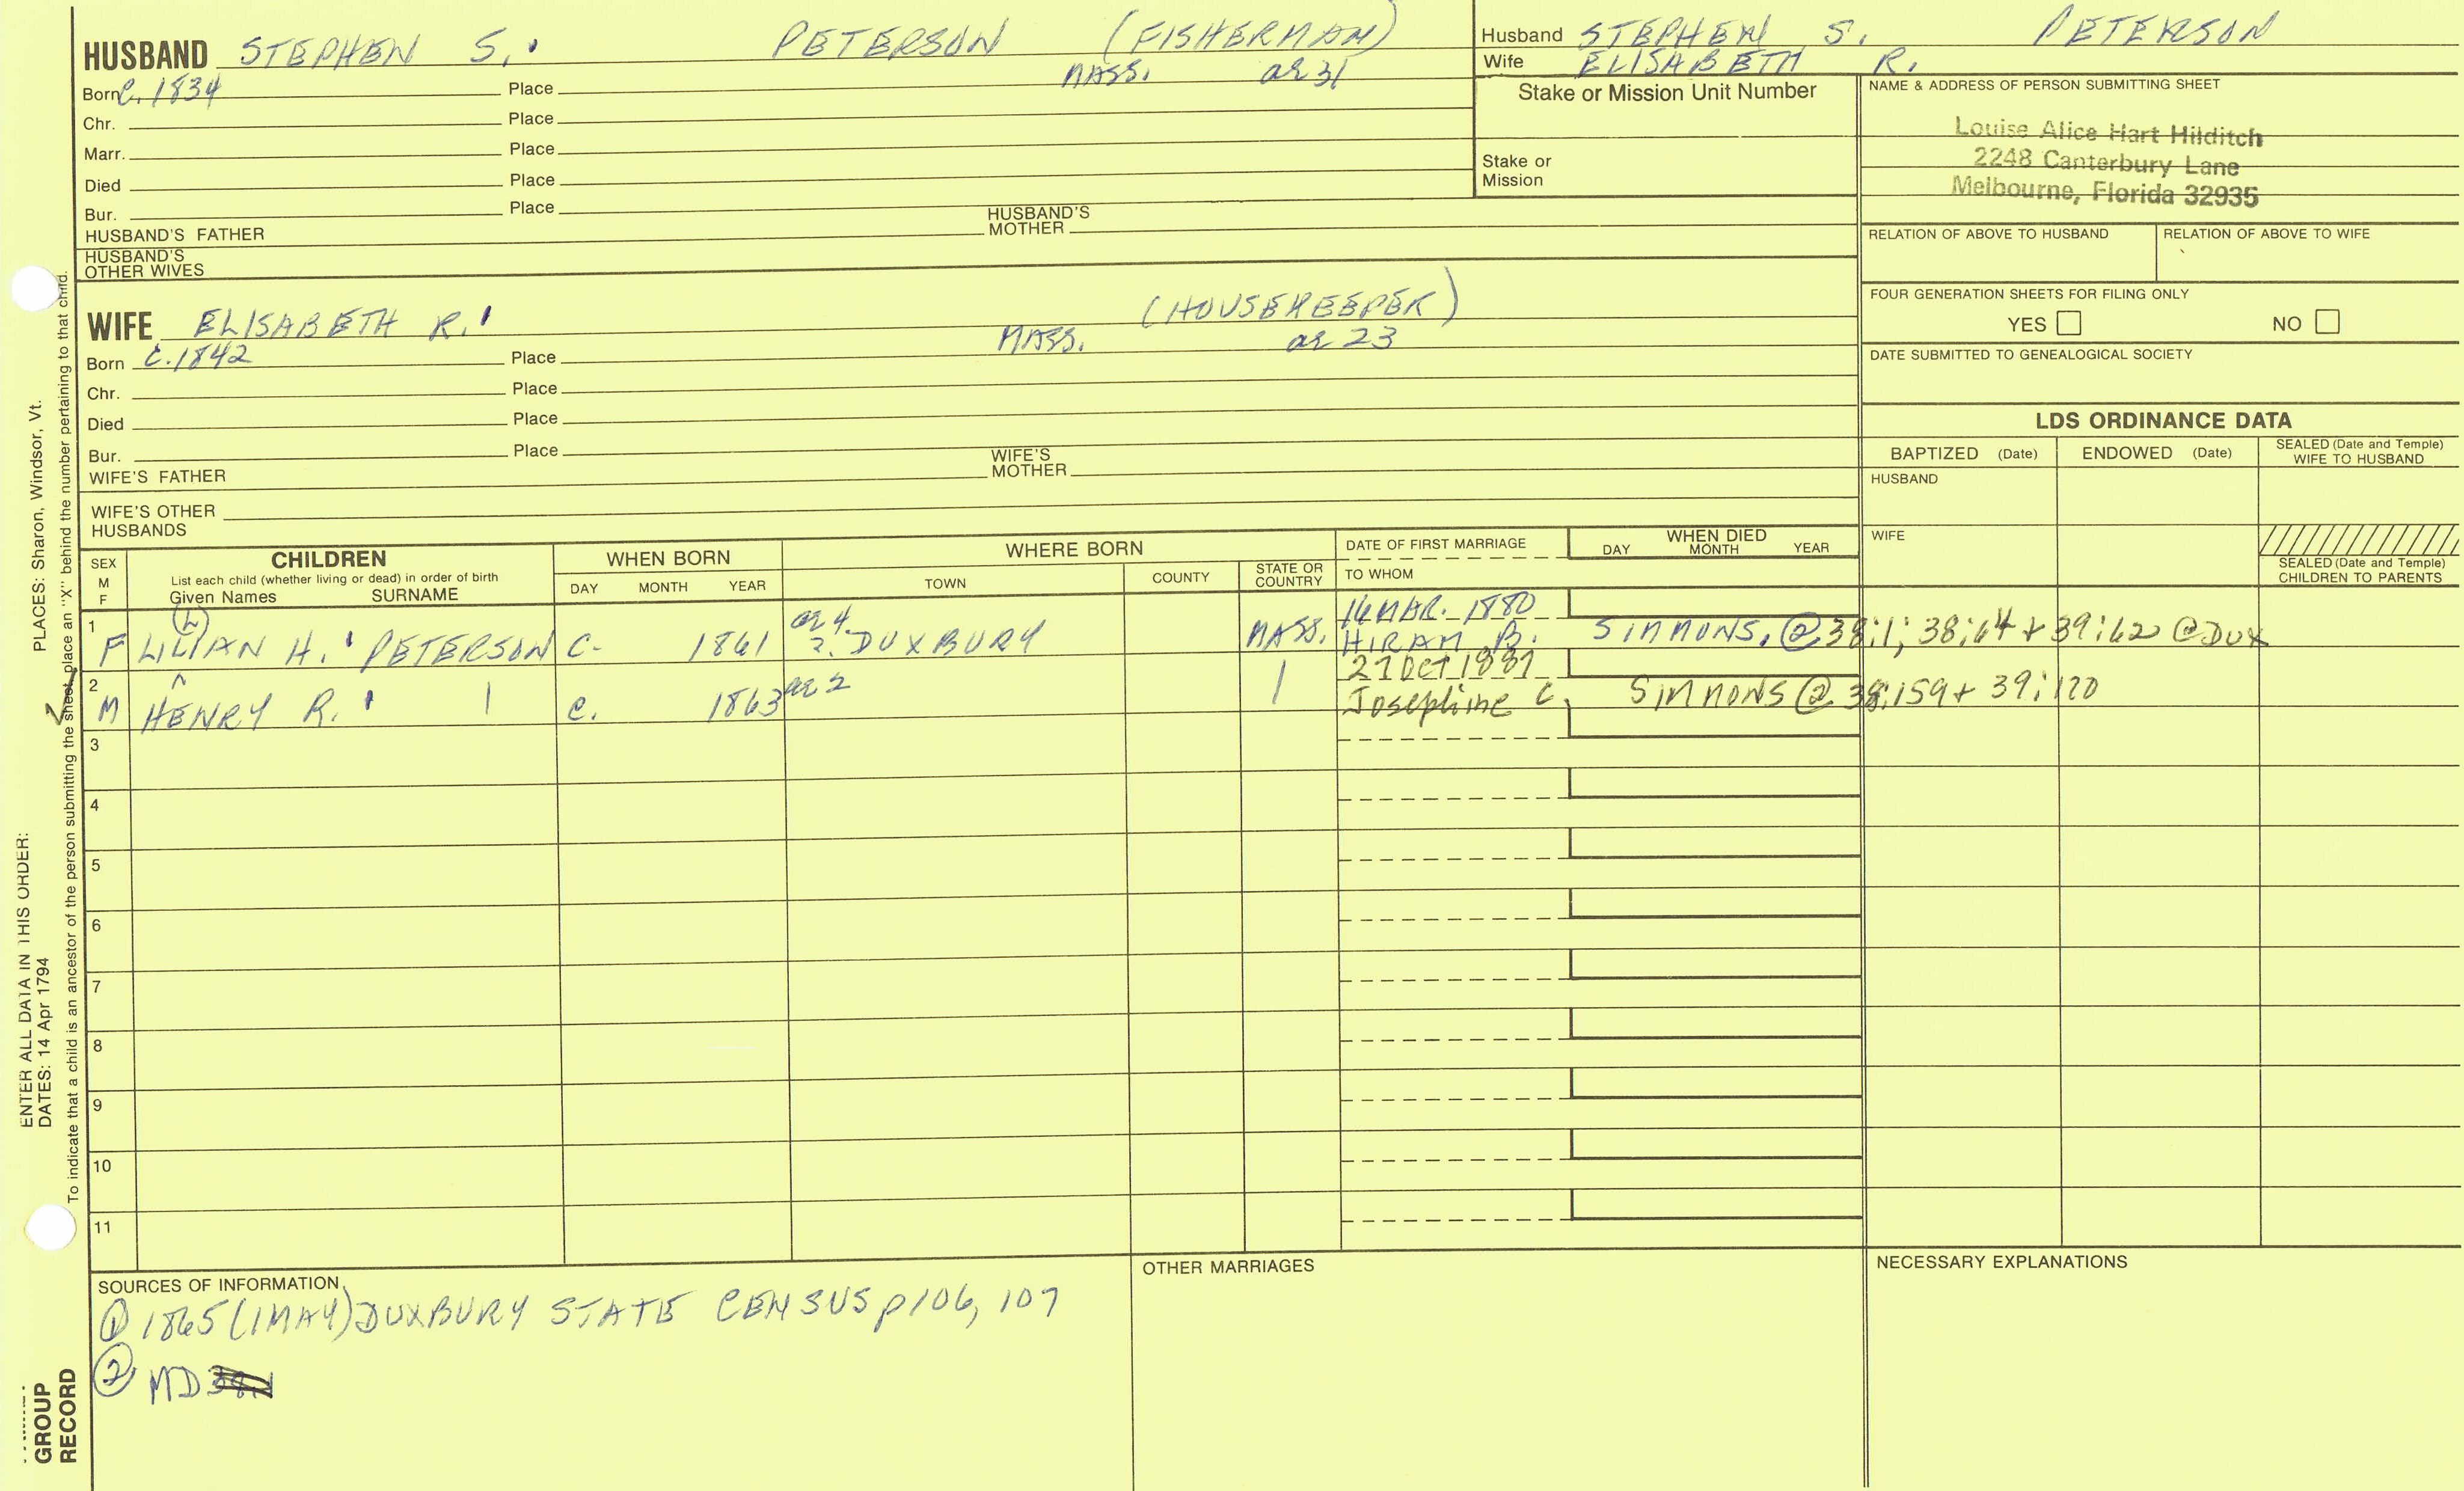 HUSBAND STEPHEN S. PETERSON (FISHERMAN)
Born C. 1834 Place MASS. ae 31
Chr. Place
Marr. Place
Died Place
Bur. Place
HUSBAND'S FATHER HUSBAND'S MOTHER
HUSBAND'S OTHER WIVES
Husband STEPHEN S. PETERSON
Wife ELISABETH R.
Stake or Mission Unit Number
Stake or Mission
NAME & ADDRESS OF PERSON SUBMITTING SHEET
Louise Alice Hart Hilditch
2248 Canterbury Lane
Melbourne, Florida 32935
RELATION OF ABOVE TO HUSBAND RELATION OF ABOVE TO WIFE
FOUR GENERATION SHEETS FOR FILING ONLY
YES NO
DATE SUBMITTED TO GENEALOGICAL SOCIETY
WIFE ELISABETH R. (HOUSEKEEPER)
Born C. 1842 Place MASS. ae 23
Chr. Place
Died Place
Bur. Place
WIFE'S FATHER WIFE'S MOTHER
WIFE'S OTHER HUSBANDS
LDS ORDINANCE DATA
BAPTIZED (Date) ENDOWED (Date) SEALED (Date and Temple) WIFE TO HUSBAND
HUSBAND
WIFE
SEALED (Date and Temple) CHILDREN TO PARENTS
SEX M F
CHILDREN
List each child (whether living or dead) in order of birth
Given Names SURNAME
WHEN BORN
DAY MONTH YEAR
WHERE BORN
TOWN COUNTY STATE OR COUNTRY
DATE OF FIRST MARRIAGE
TO WHOM
WHEN DIED
DAY MONTH YEAR
1 ae 4 16 MAR. 1880
F LILIAN H. PETERSON C. 1861 ?. DUXBURY MASS. HIRAM B. SIMMONS. @ 38:1; 38:64 + 39:62 @ DUX
(L)
2 ae 2 27 Oct 1887
M HENRY R. C. 1863 Josephine C. SIMMONS @ 38:159 + 39:120
3
4
5
6
7
8
9
10
11
SOURCES OF INFORMATION
① 1865 (1MAY) DUXBURY STATE CENSUS p106, 107
② MD
OTHER MARRIAGES
NECESSARY EXPLANATIONS
ENTER ALL DATA IN THIS ORDER:
DATES: 14 Apr 1794
PLACES: Sharon, Windsor, Vt.
To indicate that a child is an ancestor of the person submitting the sheet, place an "X" behind the number pertaining to that child.
GROUP
RECORD